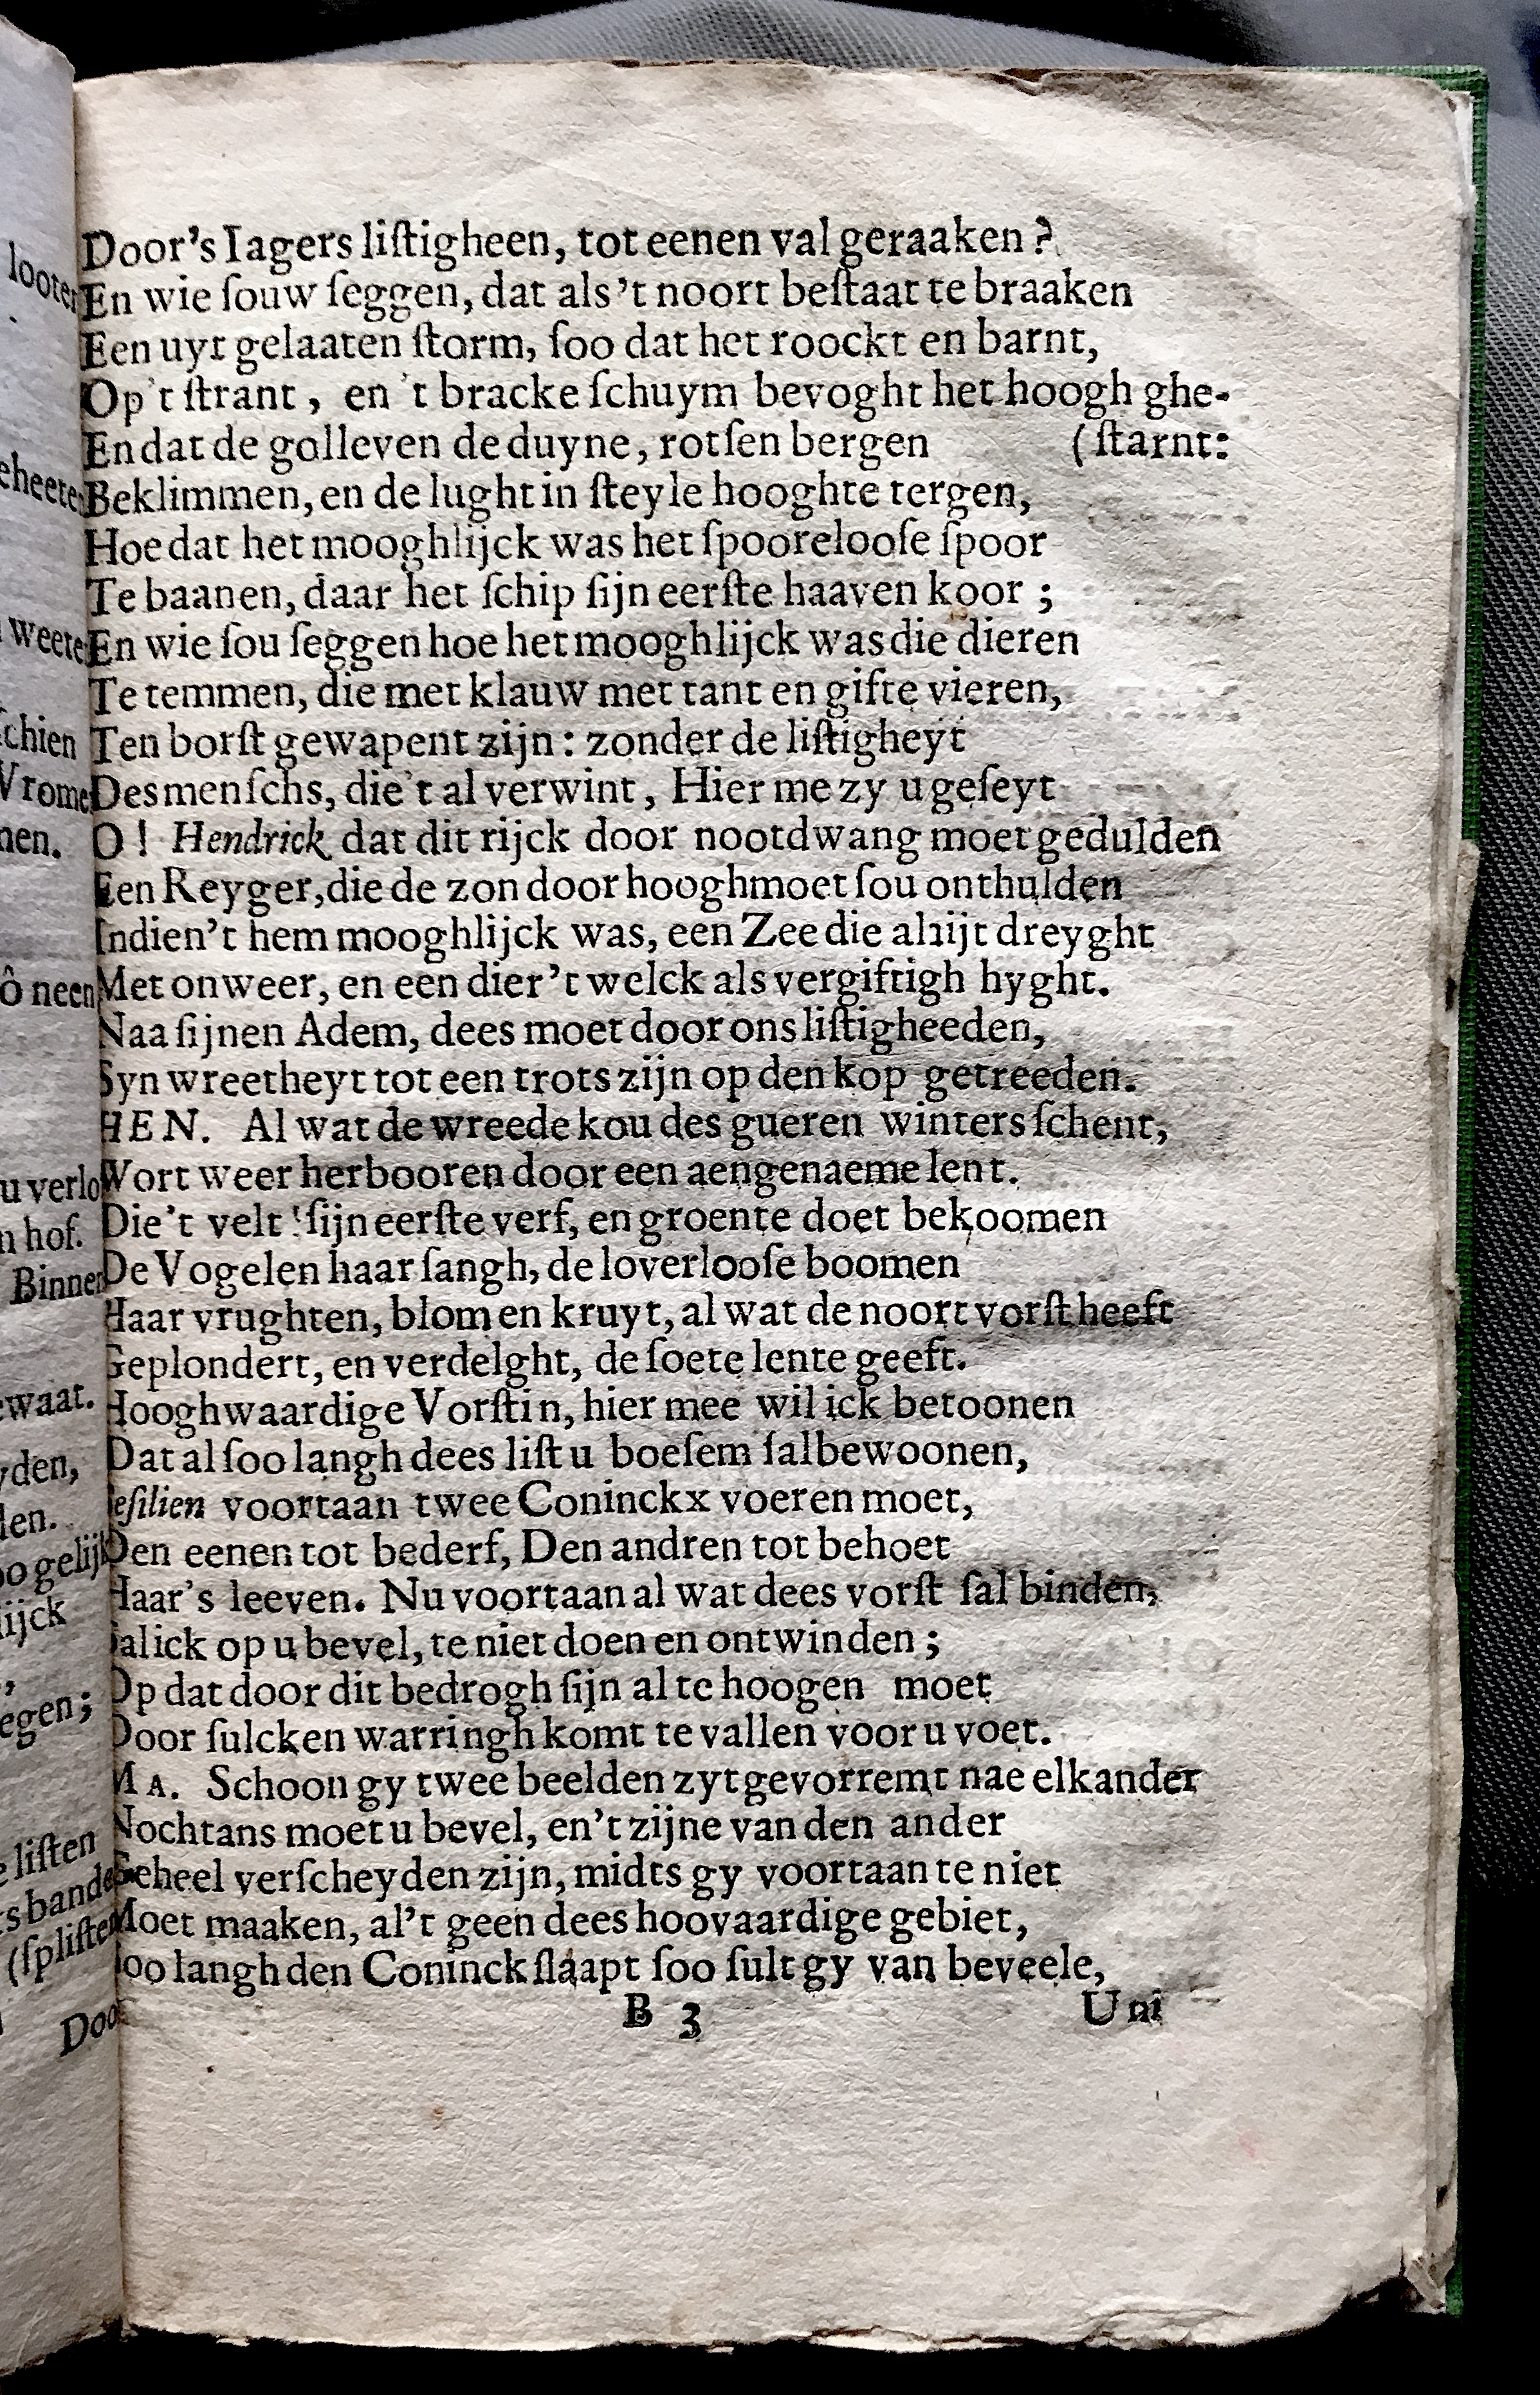 Door's Iagers liſtigheen, tot eenen val geraaken?
En wie ſouw ſeggen, dat als 't noort beſtaat te braaken
Een uyt gelaaten ſtorm, ſoo dat het roockt en barnt,
Op 't ſtrant, en 't bracke ſchuym bevoght het hoogh ghe-
En dat de golleven de duyne, rotſen bergen (ſtarnt:
Beklimmen, en de lught in ſteyle hooghte tergen,
Hoe dat het mooghlijck was het ſpooreloose ſpoor
Te baanen, daar het ſchip ſijn eerſte haaven koor;
En wie ſou ſeggen hoe het mooghlijck was die dieren
Te temmen, die met klauw met tant en gifte vieren,
Ten borſt gewapent zijn: zonder de liſtigheyt
Des menſchs, die 't al verwint, Hier me zy u geſeyt
O! Hendrick dat dit rijck door nootdwang moet gedulden
Een Reyger, die de zon door hooghmoet ſou onthulden
Indien't hem mooghlijck was, een Zee die altijt dreyght
Met onweer, en een dier 't welck als vergiftigh hyght.
Naa ſijnen Adem, dees moet door ons liſtigheeden,
Syn wreetheyt tot een trots zijn op den kop getreeden.
HEN. Al wat de wreede kou des gueren winters ſchent,
Wort weer herbooren door een aengenaeme lent.
Die't velt ſijn eerſte verf, en groente doet bekoomen
De Vogelen haar ſangh, de loverlooſe boomen
Haar vrughten, blom en kruyt, al wat de noort vorſt heeft
Geplondert, en verdelght, de ſoete lente geeft.
Hooghwaardige Vorſtin, hier mee wil ick betoonen
Dat al ſoo langh dees liſt u boeſem ſal bewoonen,
Ceſilien voortaan twee Coninckx voeren moet,
Den eenen tot bederf, Den andren tot behoet
Haar's leeven. Nu voortaan al wat dees vorſt ſal binden,
Sal ick op u bevel, te niet doen en ontwinden;
Op dat door dit bedrogh ſijn al te hoogen moet
Door ſulcken warringh komt te vallen voor u voet.
MA. Schoon gy twee beelden zyt gevorremt nae elkander
Nochtans moet u bevel, en't zijne van den ander
Geheel verſcheyden zijn, midts gy voortaan te niet
Moet maaken, al't geen dees hoovaardige gebiet,
Soo langh den Coninck ſlaapt ſoo ſult gy van beveele,
B 3 Uni